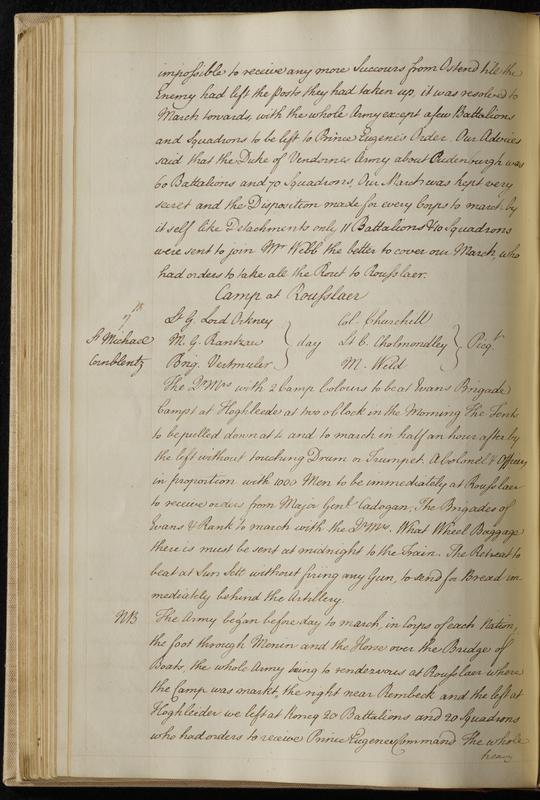 impossible to receive any more Succours from Ostend till the
Enemy had left the posts they had taken up, it was resolved to
March towards, with the whole Army except a few Battalions
and Squadrons to be left to Prince Eugene's Order. Our Advices
said that the Duke of Vendome's Army about Oudenburgh was
60 Battalions and 70 Squadrons, Our March was kept very
secret and the Disposition made for every Corps to march by
it self like Detachments only 11 Battalions & 10 Squadrons
were sent to join Mr Webb the better to cover our March, who
had orders to take all the Rout to Rousslaer.
Camp at Rousslaer
7th
St Michael
Cornblentz
Lt G. Lord Orkney
M. G. Rantzau
Brig. Vertmuler
day
Col. Churchill
Lt C. Cholmondley
M. Weld
Piqt
The Qr Mrs with 2 Camp Colours to be at Evans Brigade
Campt at Hoghleeder at two o'Clock in the Morning The Tents
to be pulled down at 4 and to march in half an hour after by
the left without touching Drum or Trumpet. A Colonel & Officers
in proportion with 1000 Men to be immediately at Rousslaer
to receive orders from Major Genl Cadogan, The Brigades of
Evans & Rank to march with the Qr Mrs. What Wheel Baggage
there is must be sent at midnight to the Train. The Retreat to
beat at Sun Sett without firing any Gun, to send for Bread im
mediately behind the Artillery.
NB The Army began before day to march, in Corps of each Nation,
the foot through Menin and the Horse over the Bridge of
Boats, the whole Army being to rendezvous at Rousslaer where
the Camp was markt, the right near Rembeck and the left at
Hoghleider we left at Roneq 20 Battalions and 20 Squadrons
who had orders to receive Prince Eugenes Command The whole
heavy